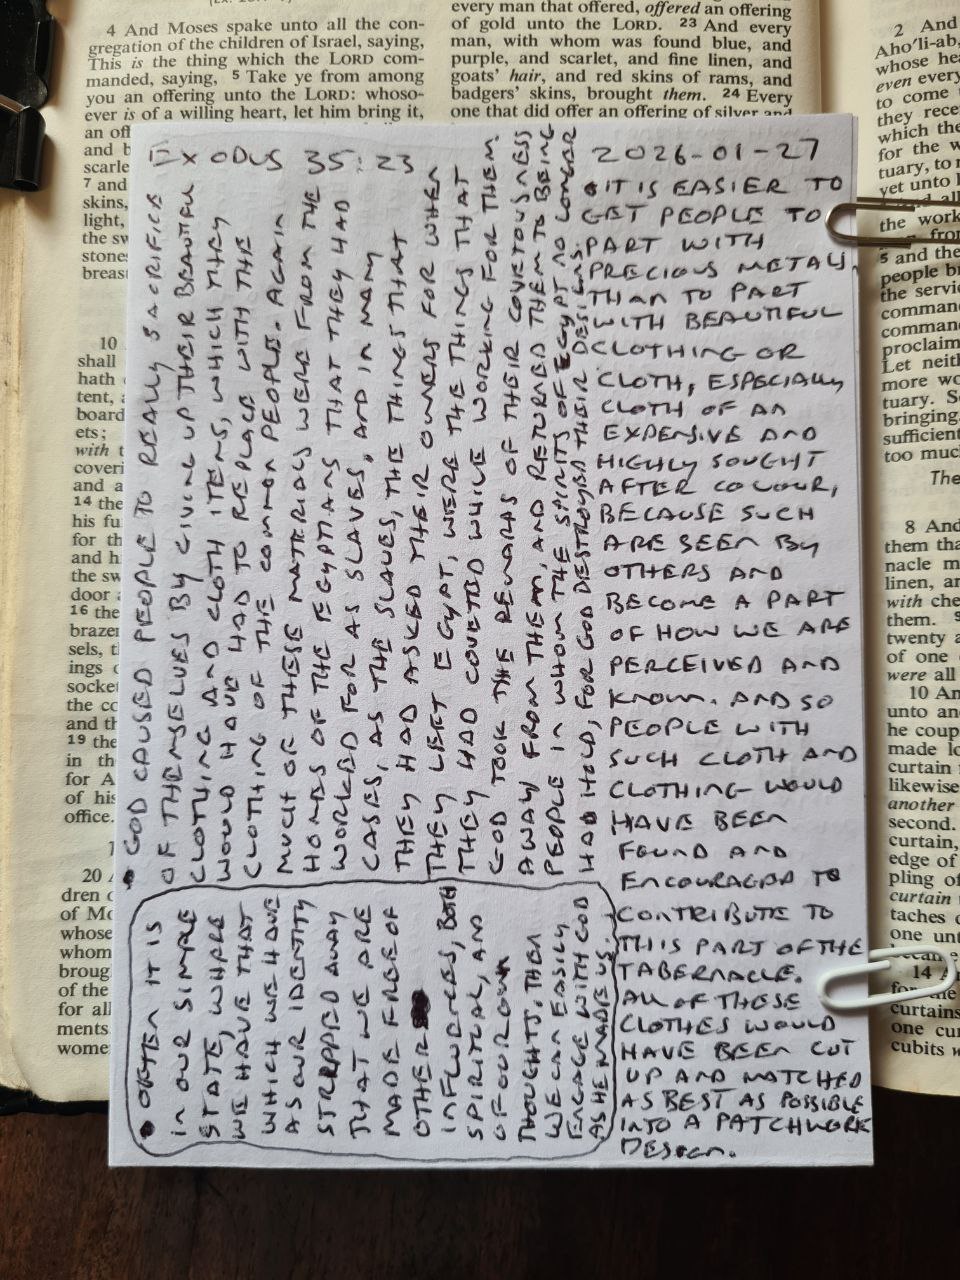 4 And Moses spake unto all the con-
gregation of the children of Israel, saying,
This is the thing which the LORD com-
manded, saying, 5 Take ye from among
you an offering unto the LORD: whoso-
ever is of a willing heart, let him bring it,
an off
and b
scarle
7 and
skins,
light,
the sw
stones
breast
10
shall
hath
tent, a
board
ets;
with t
coveri
and a
14 the
his fu
for th
and h
the sw
door
16 the
brazen
sels, t
ings o
socket
the co
and th
19 the
in the
for A
of his
office.
20
dren o
of Mo
whose
whom
broug
of the
for all
ments
wome
every man that offered, offered an offering
of gold unto the LORD. 23 And every
man, with whom was found blue, and
purple, and scarlet, and fine linen, and
goats' hair, and red skins of rams, and
badgers' skins, brought them. 24 Every
one that did offer an offering of silver and
EXODUS 35:23
2026-01-27
• IT IS EASIER TO
GET PEOPLE TO
PART WITH
PRECIOUS METALS
THAN TO PART
WITH BEAUTIFUL
CLOTHING OR
CLOTH, ESPECIALLY
CLOTH OF AN
EXPENSIVE AND
HIGHLY SOUGHT
AFTER COLOUR,
BECAUSE SUCH
ARE SEEN BY
OTHERS AND
BECOME A PART
OF HOW WE ARE
PERCEIVED AND
KNOWN. AND SO
PEOPLE WITH
SUCH CLOTH AND
CLOTHING WOULD
HAVE BEEN
FOUND AND
ENCOURAGED TO
CONTRIBUTE TO
THIS PART OF THE
TABERNACLE.
ALL OF THESE
CLOTHES WOULD
HAVE BEEN CUT
UP AND MATCHED
AS BEST AS POSSIBLE
INTO A PATCHWORK
DESIGN.
• GOD CAUSED PEOPLE TO REALLY SACRIFICE
OF THEMSELVES BY GIVING UP THEIR BEAUTIFUL
CLOTHING AND CLOTH ITEMS, WHICH THEY
WOULD HAVE HAD TO REPLACE WITH THE
CLOTHING OF THE COMMON PEOPLE. AGAIN
MUCH OF THESE MATERIALS WERE FROM THE
HOMES OF THE EGYPTIANS THAT THEY HAD
WORKED FOR AS SLAVES, AND IN MANY
CASES, AS THE SLAVES, THE THINGS THAT
THEY HAD ASKED THEIR OWNERS FOR WHEN
THEY LEFT EGYPT, WERE THE THINGS THAT
THEY HAD COVETED WHILE WORKING FOR THEM.
GOD TOOK THE REWARDS OF THEIR COVETOUSNESS
AWAY FROM THEM, AND RETURNED THEM TO BEING
PEOPLE IN WHOM THE SPIRITS OF EGYPT NO LONGER
HAD HOLD, FOR GOD DESTROYED THEIR DESIGNS.
• OFTEN IT IS
IN OUR SIMPLE
STATE, WHERE
WE HAVE THAT
WHICH WE HAVE
AS OUR IDENTITY
STRIPPED AWAY
THAT WE ARE
MADE FREE OF
OTHER
INFLUENCES, BOTH
SPIRITUAL, AND
OF OUR OWN
THOUGHTS. THEN
WE CAN EASILY
ENGAGE WITH GOD
AS HE MADE US.
2 And
Aho'li-ab,
whose hea
even every
to come
they rece
which the
for the w
tuary, to
yet unto
the work
from
5 and the
people br
the servic
command
command
proclaim
Let neith
more wo
tuary. S
bringing.
sufficient
too much
The
8 And
them tha
nacle m
linen, an
with che
them. 9
twenty a
of one
were all
10 An
unto an
he coup
made lo
curtain
likewise
another
second.
curtain,
edge of
pling of
curtain
taches
one unt
14
for the
curtains
one cur
cubits w